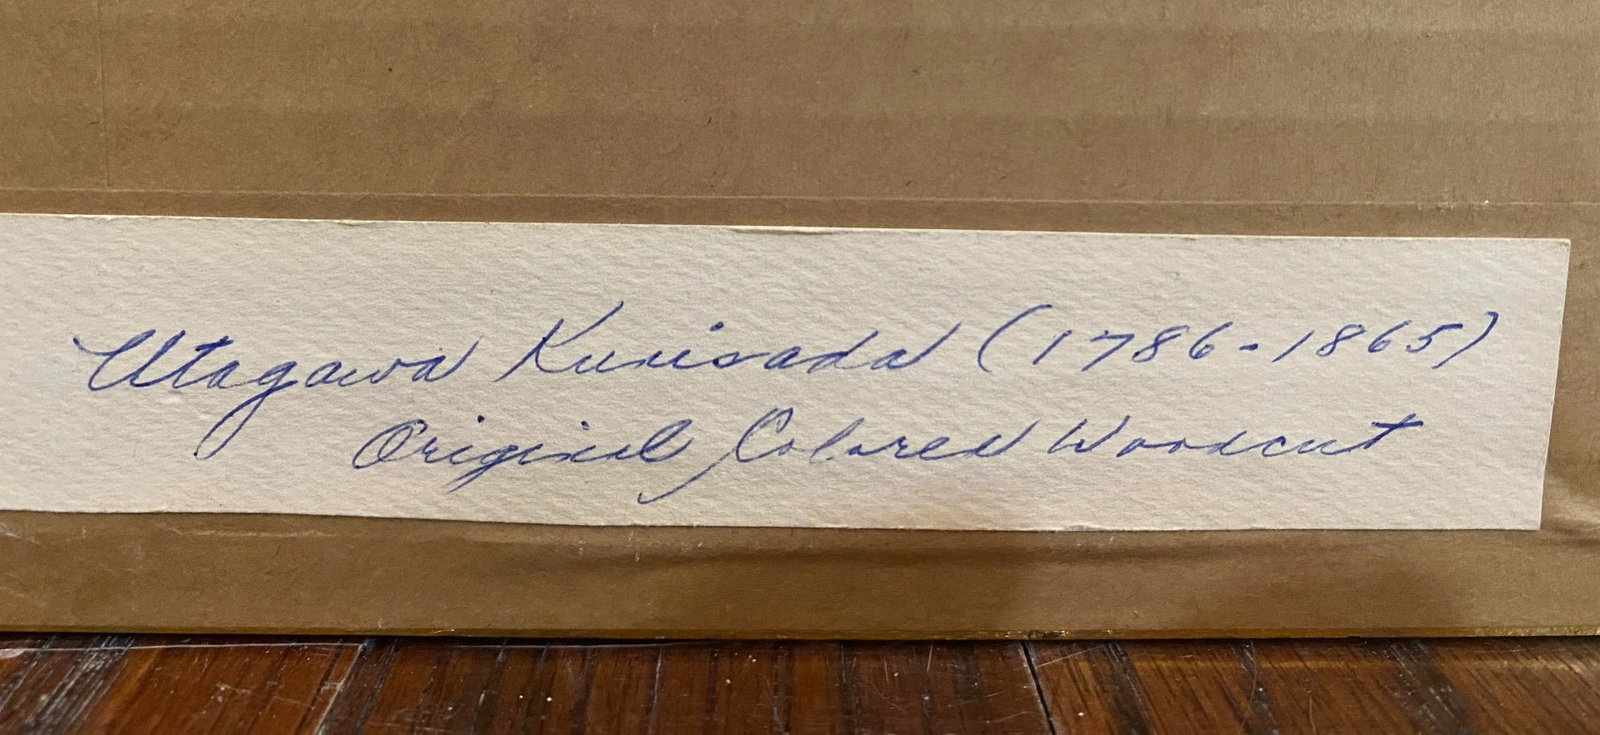 Utagawa Kunisada (1786-1865)
Original Colored Woodcut